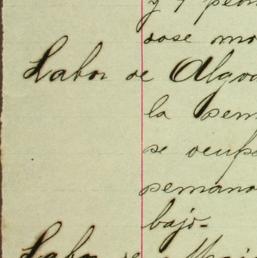 y 7 peon
dose mo
Labor de Algod
la sem
se ocup
semana
bajo.
Labor de Mai